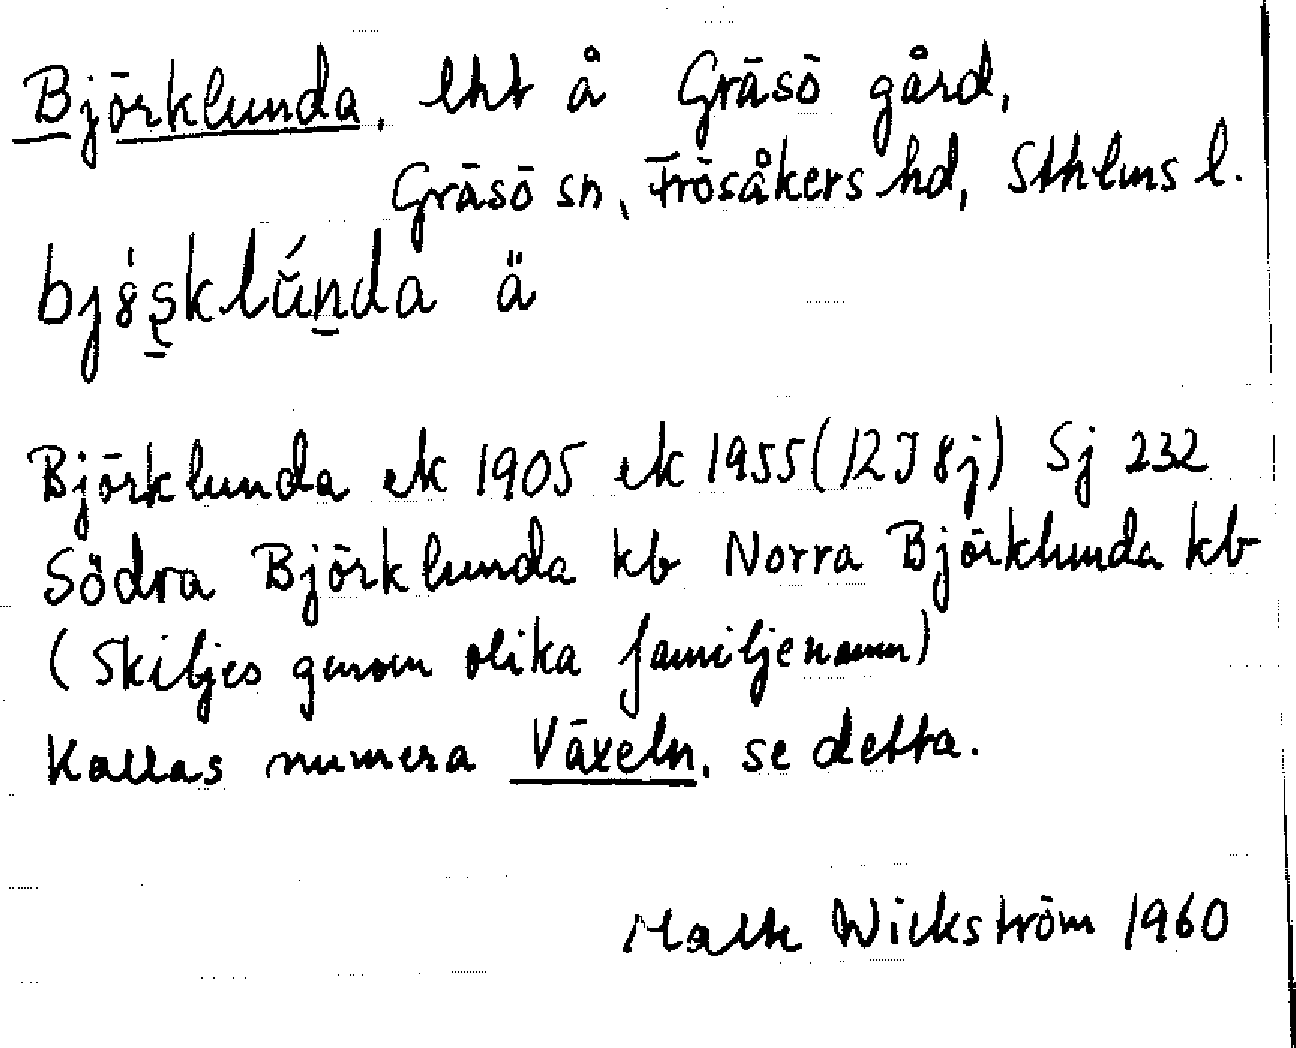 Björklunda, lht å Gräsö gård,
Gräsö sn, Frösåkers hd, Sthlms l.
ä
Björklunda ek 1905 ek 1955 (12J 8j) Sj 232
Södra Björklunda kb Norra Björklunda kb
(Skiljes genom olika familjenamn)
Kallas numera Växeln, se detta.
Malte Wickström 1960